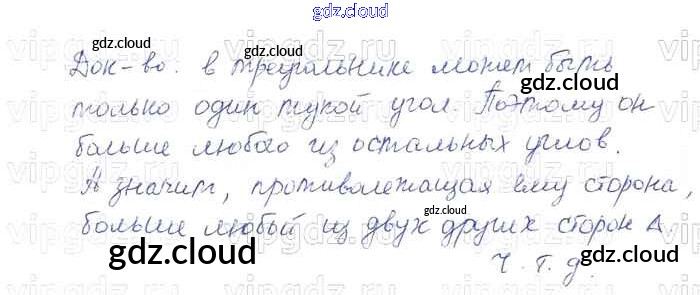 gdz.cloud
Док-во. в треугольнике может быть
только один тупой угол. Поэтому он
больше любого из остальных углов.
А значит, противолежащая ему сторона,
больше любый из двух других сторон Δ.
ч. т. д.
gdz.cloud
gdz.cloud
gdz.cloud
gdz.cloud
gdz.cloud
gdz.cloud